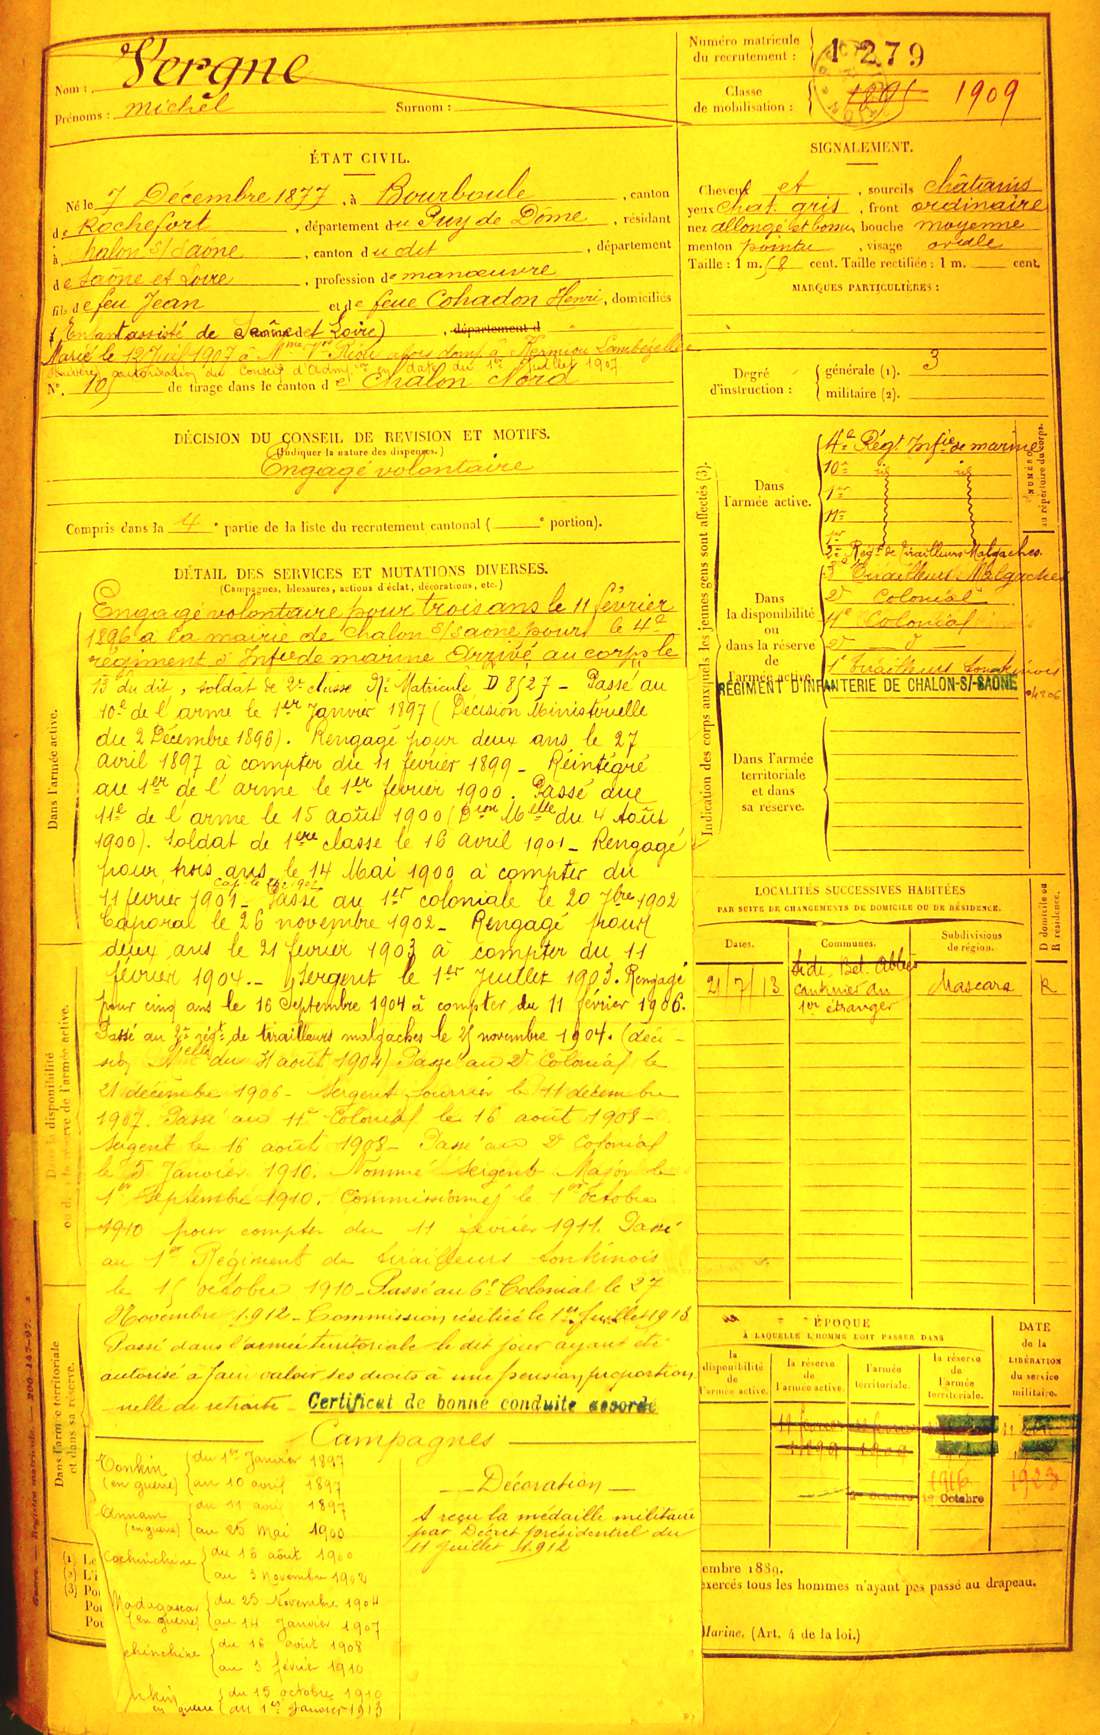 Nom : Vergne
Prénoms : Michel Surnom :
Numéro matricule du recrutement : 1279
Classe de mobilisation : 1909
ÉTAT CIVIL.
Né le 7 Décembre 1877, à Bourboule, canton
de Rochefort, département du Puy de Dôme, résidant
à Chalon s/ Saône, canton du dit, département
de Saône et Loire, profession de manœuvre
fils de feu Jean et de feue Cohadon Henri, domiciliés
(Enfant assisté de Saône et Loire), département d
Marié le 12 Juil 1907 à Mme Vve
autorisation du Conseil d'Adm. en date du 1er Juillet 1907
N°. 105 de tirage dans le canton de Chalon Nord
SIGNALEMENT.
Cheveux et, sourcils châtains
yeux chat. gris, front ordinaire
nez allongé et bossu, bouche moyenne
menton pointu, visage ovale
Taille : 1 m. 58 cent. Taille rectifiée : 1 m. cent.
MARQUES PARTICULIÈRES :
Degré d'instruction : générale (1). 3
militaire (2).
DÉCISION DU CONSEIL DE REVISION ET MOTIFS.
(Indiquer la nature des dispenses.)
Engagé volontaire
Compris dans la 4e partie de la liste du recrutement cantonal ( e portion).
DÉTAIL DES SERVICES ET MUTATIONS DIVERSES.
(Campagnes, blessures, actions d'éclat, décorations, etc.)
Engagé volontaire pour trois ans le 11 février
1896 à la mairie de Chalon s/saone pour le 4e
régiment d'Infie de marine Arrivé au corps le
13 du dit, soldat de 2e classe No Matricule D 8527 - Passé au
10e de l'arme le 1er Janvier 1897 (Décision Ministérielle
du 2 Décembre 1896). Rengagé pour deux ans le 27
avril 1897 à compter du 11 février 1899 - Réintégré
au 1er de l'arme le 1er février 1900. Passé au
11e de l'arme le 15 août 1900 (Dion Mlle du 4 Août
1900). Soldat de 1ère classe le 16 avril 1901 - Rengagé
pour trois ans le 14 Mai 1900 à compter du
11 février 1901 - Passé au 1er coloniale le 20 7bre 1902
Caporal le 26 novembre 1902 - Rengagé pour
deux ans le 21 février 1903 à compter du 11
février 1904. - Sergent le 1er Juillet 1903. Rengagé
pour cinq ans le 16 Septembre 1904 à compter du 11 février 1906.
Passé au 3e régt de tirailleurs malgaches le 25 novembre 1904. (déci-
sion Mlle du 31 août 1904) Passé au 2e Colonial le
21 décembre 1906 - Sergent fourrier le 11 décembre
1907. Passé au 11e Colonial le 16 août 1908 -
Sergent le 16 août 1908 - Passé au 2e Colonial
le 5 Janvier 1910. Nommé Sergent Major le
1er Septembre 1910. Commissionné le 1er octobre
1910 pour compter du 11 février 1911. Passé
au 1er Régiment de tirailleurs tonkinois
le 15 octobre 1910 - Passé au 6e Colonial le 27
Novembre 1912 - Commission résiliée le 1er Juillet 1913
Passé dans l'armée territoriale le dit jour ayant été
autorisé à faire valoir ses droits à une pension proportion
nelle de retraite - Certificat de bonne conduite accordé
Campagnes
Tonkin (en guerre) du 1er Janvier 1897
au 10 avril 1897
Annam (en guerre) du 11 avril 1897
au 25 Mai 1900
Cochinchine du 15 août 1900
au 3 Novembre 1902
Madagascar (en guerre) du 25 Novembre 1904
au 14 Janvier 1907
chinchine du 16 août 1908
au 3 février 1910
nkin en guerre du 15 octobre 1910
au 1er Janvier 1913
Décoration
A reçu la médaille militaire
par Décret présidentiel du
11 Juillet 1912
Dans l'armée active.
Dans la disponibilité
ou dans la réserve de l'armée active.
Dans l'armée territoriale
et dans sa réserve.
Indication des corps auxquels les jeunes gens sont affectés (3).
NUMÉRO au répertoire du corps.
Dans l'armée active.
4e Régt Infie de marine
10e id id
1er
11e
1er
3e Régt de Tirailleurs Malgaches
Dans la disponibilité ou dans la réserve de l'armée active.
3e Tirailleurs Malgaches
2e Colonial
11e Colonial
2e d
1er Tirailleurs Tonkinois
RÉGIMENT D'INFANTERIE DE CHALON-S/-SAONE
Dans l'armée territoriale et dans sa réserve.
LOCALITÉS SUCCESSIVES HABITÉES
PAR SUITE DE CHANGEMENTS DE DOMICILE OU DE RÉSIDENCE.
Dates. Communes. Subdivisions de région. D domicile ou R résidence.
21/7/13 Sidi Bel Abbès
cantinier au Mascara R
1er étranger
ÉPOQUE
À LAQUELLE L'HOMME DOIT PASSER DANS
DATE de la LIBÉRATION du service militaire.
la disponibilité de l'armée active.
la réserve de l'armée active.
l'armée territoriale.
la réserve de l'armée territoriale.
1916 1923
1er Octobre
(1) Le
(2) L'i
(3) Pou
Pou
Pou
embre 1889.
exercés tous les hommes n'ayant pas passé au drapeau.
Marine. (Art. 4 de la loi.)